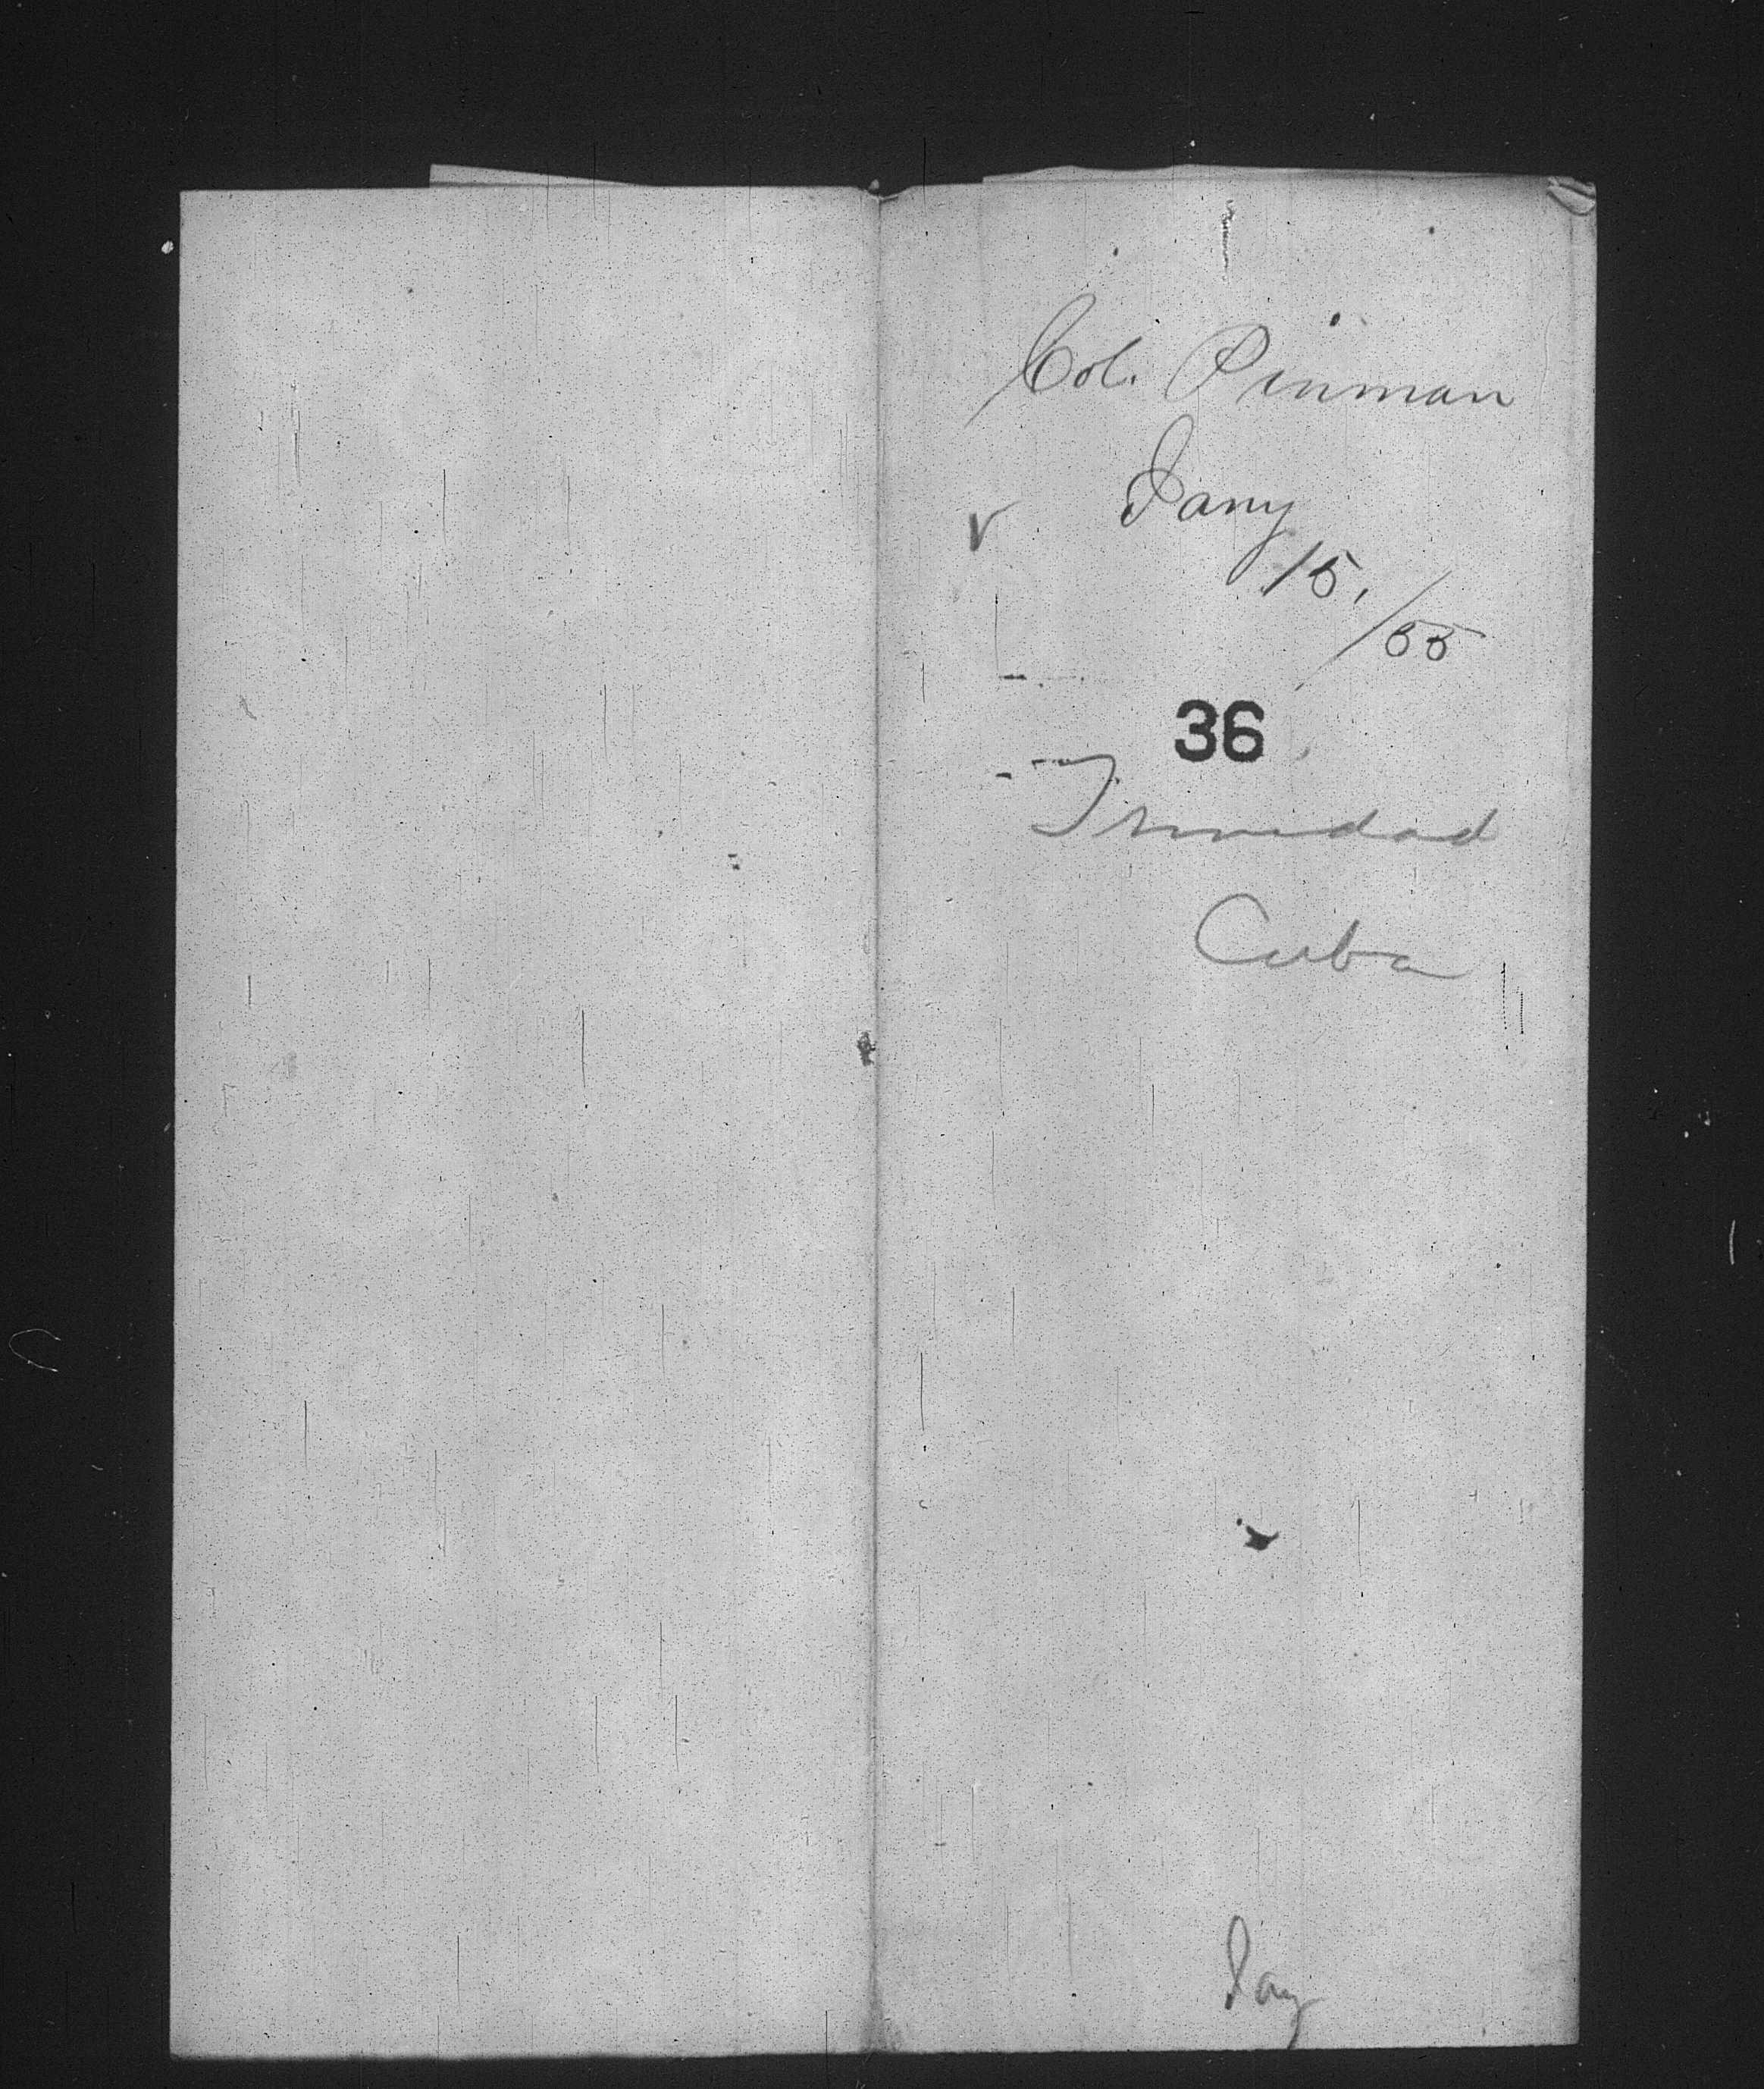 Col. Pinman
Jany
15,
/55
36
Trinidad
Cuba
Jany